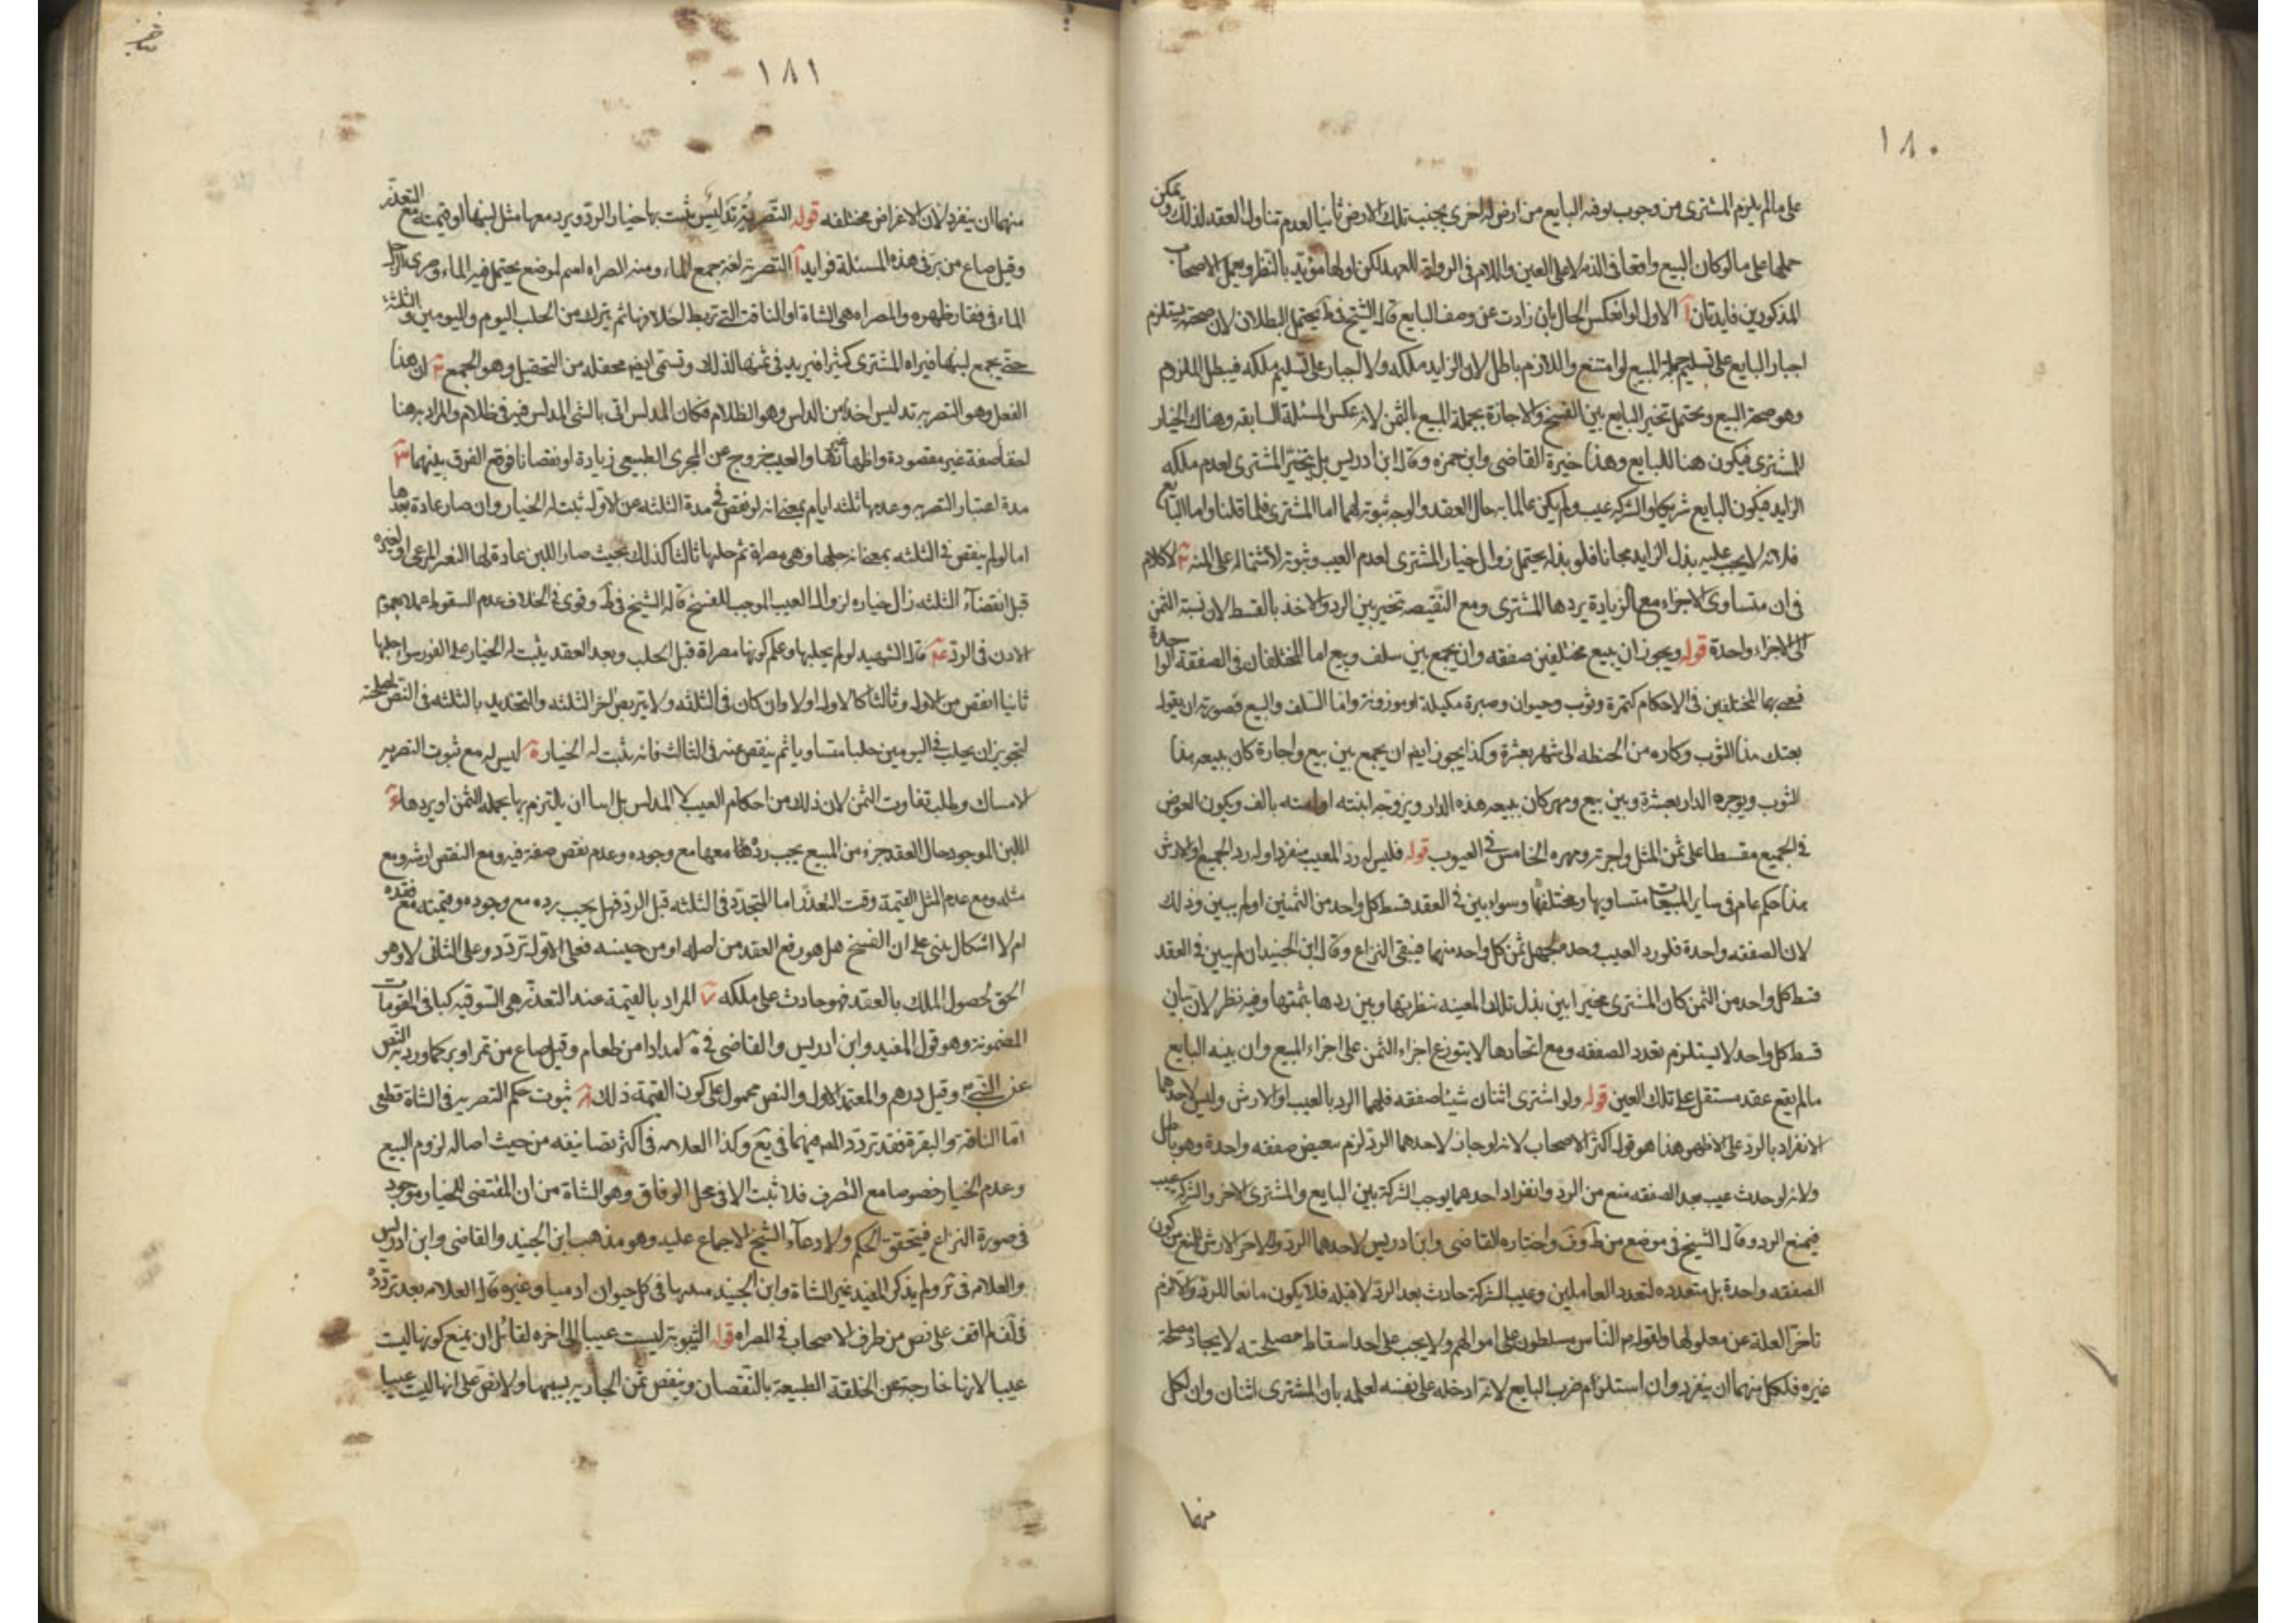 ١٨٠
على ما لم يلزم المشترى من وجوب توفيه البايع من ارض له اخرى بجنب تلك الارض ثانيا لعدم تناول العقد لذلك ويمكن
حملها على ما لو كان البيع واقعا فى الذمه لا على العين واللام فى الرواية للعهد لكن اولها مؤيد بالنظر وبعمل الاصحاب
المذكورين فايدتان آ الاول لو انعكس الحال بان زادت عن وصف البايع قال الشيخ فى ط يحتمل البطلان لان صحته يستلزم
اجبار البايع على تسليم جملة المبيع لو امتنع واللازم باطل لان الزايد ملكه ولا اجبار على تسليم ملكه فيبطل الملزوم
وهو صحة البيع ويحتمل تخير البايع بين الفسخ والاجازة بجملة المبيع بالثمن لانه عكس المسئلة السابقه وهناك الخيار
للمشترى فيكون هنا للبايع وهذا خيرة القاضى وابن حمزه وقال ابن ادريس بل يتخير المشترى لعدم ملكه
الزايد فيكون البايع شريكا والشركه عيب ولم يكن عالما به حال العقد والوجه ثبوته لهما اما المشترى فلما قلنا واما البايع
فلانه لا يجب عليه بذل الزايد مجانا فلو بذله يحتمل زوال خيار المشترى لعدم العيب وثبوته لاشتماله على المنه ٢ لا كلام
فى ان متساوى الاجزاء مع الزيادة يردها المشترى ومع النقيصه تخير بين الرد والاخذ بالقسط لان نسبة الثمن
الى الاجزاء واحدة قوله ويجوز ان يبيع مختلفين صفقه وان يجمع بين سلف وبيع اما المختلفان فى الصفقة الواحدة
فيعنى بهما المختلفين فى الاحكام كتمرة وثوب وحيوان وصبرة مكيلة او موزونة واما السلف والبيع فصورته ان يقول
بعتك هذا الثوب وكاره من الحنطه الى شهر بعشرة وكذا يجوز ايض ان يجمع بين بيع واجارة كان يبيعه هذا
الثوب ويوجره الدار بعشرة وبين بيع ومهر كان يبيعه هذه الدار ويزوجه ابنته او امته بالف ويكون العوض
فى الجميع مقسطا على ثمن المثل واجرته ومهره الخامس فى العيوب قوله فليس له رد المعيب منفردا وله رد الجميع او الارش
هذا حكم عام فى ساير المبيعات متساويها ومختلفها وسواء بين فى العقد قسط كل واحد من الثمنين او لم يبين وذلك
لان الصفقه واحدة فلو رد العيب وحده لجهل ثمن كل واحد منهما فيبقى النزاع وقال ابن الجنيد ان لم يبين فى العقد
قسط كل واحد من الثمن كان المشترى مخيرا بين بذل تلك المعينه بنظيرتها وبين ردها بثمنها وفيه نظر لان بيان
قسط كل واحد لا يستلزم تعدد الصفقه ومع اتحادها لا يتوزع اجزاء الثمن على اجزاء المبيع وان بينه البايع
ما لم يقع عقد مستقل على تلك العين قوله ولو اشترى اثنان شيئا صفقه فلهما الرد بالعيب او الارش وليس لاحدهما
الانفراد بالرد على الاظهر هذا هو قول اكثر الاصحاب لانه لو جاز لاحدهما الرد لزم تبعيض صفقه واحدة وهو باطل
ولانه لو حدث عيب بعد الصفقه منع من الرد وانفراد احدهما يوجب الشركة بين البايع والمشترى الاخر والشركة عيب
فيمنع الرد وقال الشيخ فى موضع من ط وف واختاره القاضى وابن ادريس لاحدهما الرد وللاخر الارش لمنع كون
الصفقه واحدة بل متعدده لتعدد العاملين وعيب الشركة حادث بعد الرد لا قبله فلا يكون مانعا للرد والا لزم
تاخر العلة عن معلولها ولقوله ع الناس مسلطون على اموالهم ولا يجب على احد اسقاط مصلحته لايجاد مصلحة
غيره فلكل منهما ان ينفرد وان استلزم ضرر البايع لانه ادخله على نفسه لعلمه بان المشترى اثنان وان لكل
منهما
١٨١
منهما ان ينفرد لان الاغراض مختلفه قوله التصرية تدليس ثبت بها خيار الرد ويرد معها مثل لبنها او قيمته مع التعذر
وقيل صاع من بر فى هذه المسئلة فوايد آ التصرية لغة جمع الماء ومنه الصراه اسم لموضع يحتمل فيه الماء وصرى الرجل
الماء فى فقار ظهره والمصراه هى الشاة او الناقة التى تربط اخلافها ثم يترك من الحلب اليوم واليومين والثلثة
حتى يجمع لبنها فيراه المشترى كثيرا فيزيد فى ثمنها لذلك وتسمى ايض محفله من التحفيل وهو الجمع ٢ ان هذا
الفعل وهو التصريه تدليس اخذ من الدلس وهو الظلام فكان المدلس اتى بالشى المدلس فيه فى ظلام والمراد به هنا
احقا صفة غير مقصودة واظهار غيرها والعيب خروج عن المجرى الطبيعى زيادة او نقصانا فوقع الفرق بينهما ٣
مدة اعتبار التصريه وعدمها ثلثه ايام بمعنى انه لو نقص فى مدة الثلثه عن الاول ثبت له الخيار وان صار عادة بعدها
اما لو لم ينقص فى الثلثه بمعنى انه حلبها وهى مصراة ثم حلبها ثالثا كذلك بحيث صار اللبن عادة لها لتغير المرعى او لغيره
قبل انقضاء الثلثه زال خياره لزوال العيب الموجب للفسخ قاله الشيخ فى ط وقوى فى الخلاف عدم السقوط عملا بعموم
الاذن فى الرد ٤ قال الشهيد لو لم يحلبها وعلم كونها مصراة قبل الحلب وبعد العقد يثبت له الخيار على الفور سواء حلبها
ثانيا انقص من الاول وثالثا كالاول او لا وان كان فى الثلثه ولا يتربص اخر الثلثه والتحديد بالثلثه فى النص لمصلحته
لتجويز ان يحلب فى اليومين حلبا متساويا ثم ينقص عنه فى الثالث فانه يثبت له الخيار ٥ ليس له مع ثبوت التصريه
الامساك وطلب تفاوت الثمن لان ذلك من احكام العيب لا المدلس بل اما ان يلتزم بها بجملة الثمن او يردها ٦
اللبن الموجود حال العقد جزء من المبيع يجب ردها معها مع وجوده وعدم نقص صفة فيه ومع النقص ارشه ومع
مثله ومع عدم المثل القيمة وقت التعذر اما المتجدد فى الثلثه قبل الرد فهل يجب رده مع وجوده وقيمته مع فقده
ام لا اشكال بنى على ان الفسخ هل هو رفع العقد من اصله او من حينه فعلى الاول تردد وعلى الثانى لا وهو
الحق لحصول الملك بالعقد فهو حادث على ملكه ٧ المراد بالقيمة عند التعذر هى السوقيه كما فى المقومات
المضمونة وهو قول المفيد وابن ادريس والقاضى فى امدادا من طعام وقيل صاع من تمر او بر كما ورد به النص
عن النبى ص وقيل درهم والمعتمد الاول والنص محمول على كون القيمة ذلك ٨ ثبوت حكم التصريه فى الشاة قطعى
اما الناقة والبقرة فقد تردد المص فيهما فى يع وكذا العلامه فى اكثر تصانيفه من حيث اصالة لزوم البيع
وعدم الخيار خصوصا مع التصرف فلا ثبت الا فى محل الوفاق وهو الشاة من ان المقتضى للخيار موجود
فى صورة النزاع فيتحقق الحكم ولادعاء الشيخ الاجماع عليه وهو مذهب ابن الجنيد والقاضى وابن ادريس
والعلامه فى ولم يذكر المفيد غير الشاة وابن الجنيد فى كل حيوان ادميا وغيره قال العلامه بعد تردده
فى لف لم اقف على نص من طرف الاصحاب فى المصراه قوله الثيبوبة ليست عيبا الى اخره لقائل ان يمنع كونها ليست
عيبا لانها خارجة عن الخلقة الطبيعة بالنقصان وينقص ثمن الجاريه بسببها ولا نص على انها ليست عيبا